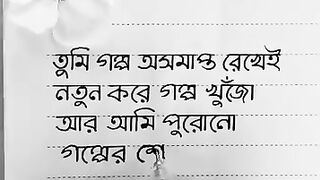 তুমি গল্প অসমাপ্ত রেখেই
নতুন করে গল্প খুঁজো
আর আমি পুরোনো
গল্পের শে